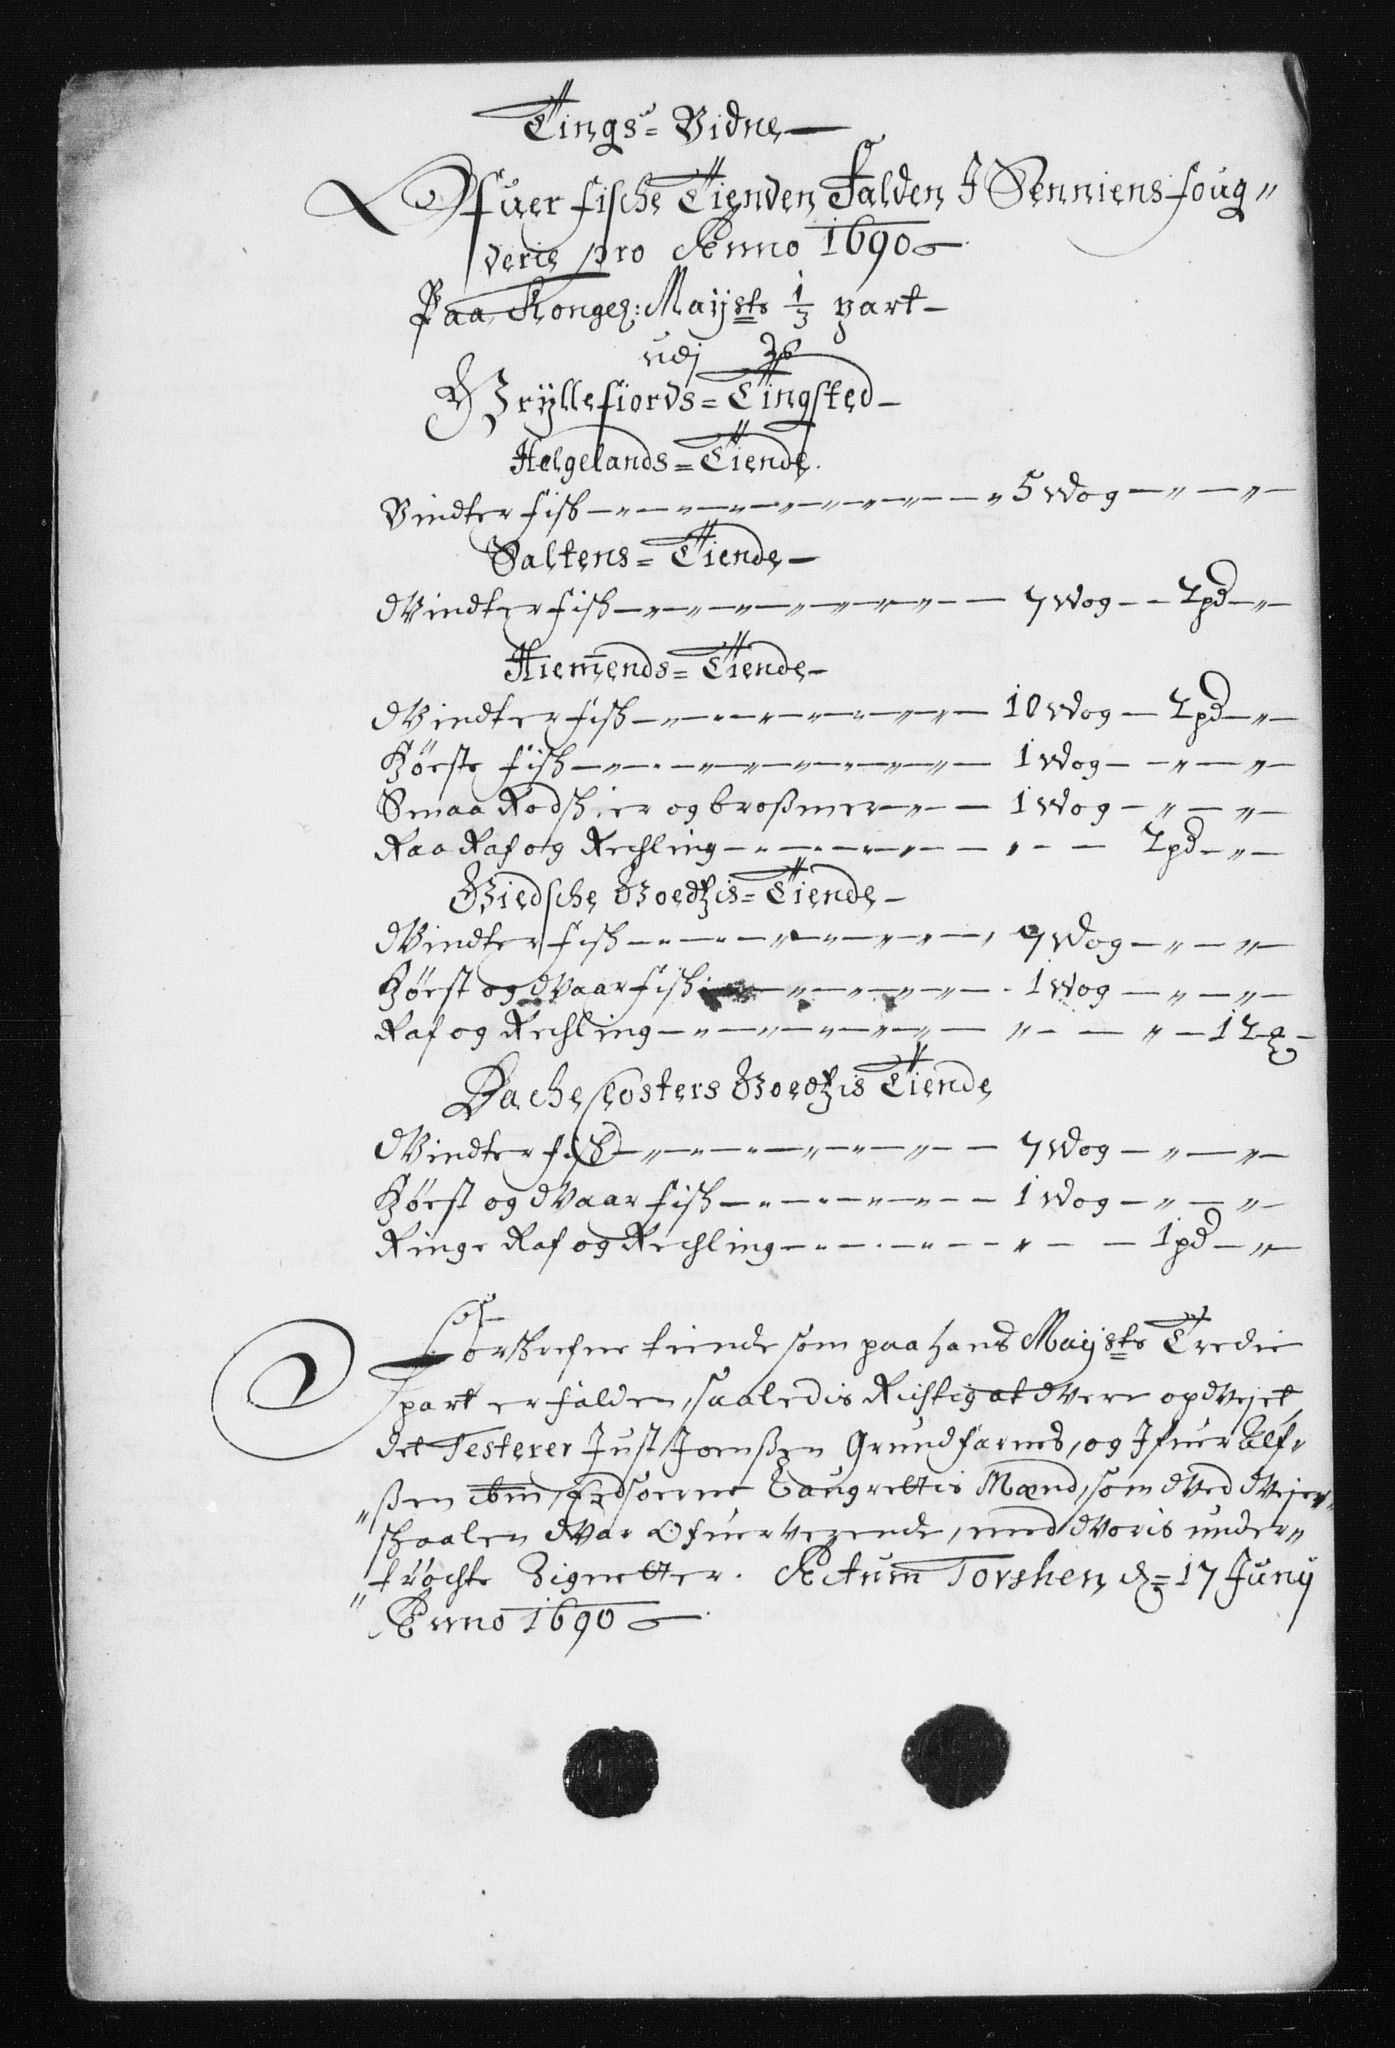 Tings= Vidne
Ofuer fische Tienden Falden J Senniens foug"
derie pro Anno 1690
Paa Konge: Maysts 1/3 part
udj
Gryllefiords= Tingsted
Helgelands= Tiende
Vindter fisk " 5 Wog " "
Saltens= Tiende
Windter fisk 7 Wog 2 pd "
Hiem̄ends= Tiende
Windter fisk 10 Wog 2 pd "
Høste fisk 1 Wog " "
Smaa Rodskier og broßmer 1 Wog " "
Raa Raf og Rechling " 2 pd "
Giedsche Goedtzis= Tiende
Windter fisk 9 Wog " "
Høst og Waar fisk 1 Wog " "
Raf og Rechling " " 12
Bache Closters Goedtzis Tiende
Windter fisk 7 Wog " "
Høst og Waar fisk 1 Wog " "
Ringe Raf og Rechling " 1 pd "
Forskrefne tiende som paa hans Maysts Tredie
part er falden, saaledis Richtig at Were opWejet
det Testerer Just Joenßen Grundfarnes, og Ifuer Elf"
"ßen ibm, Edsoerne Laugrettis Mænd, som Wed Wejer"
skaalen War ofuerverende, med Woris under"
"trøchte Zignetter. Actum Torshen, d= 17 Junij
Anno 1690